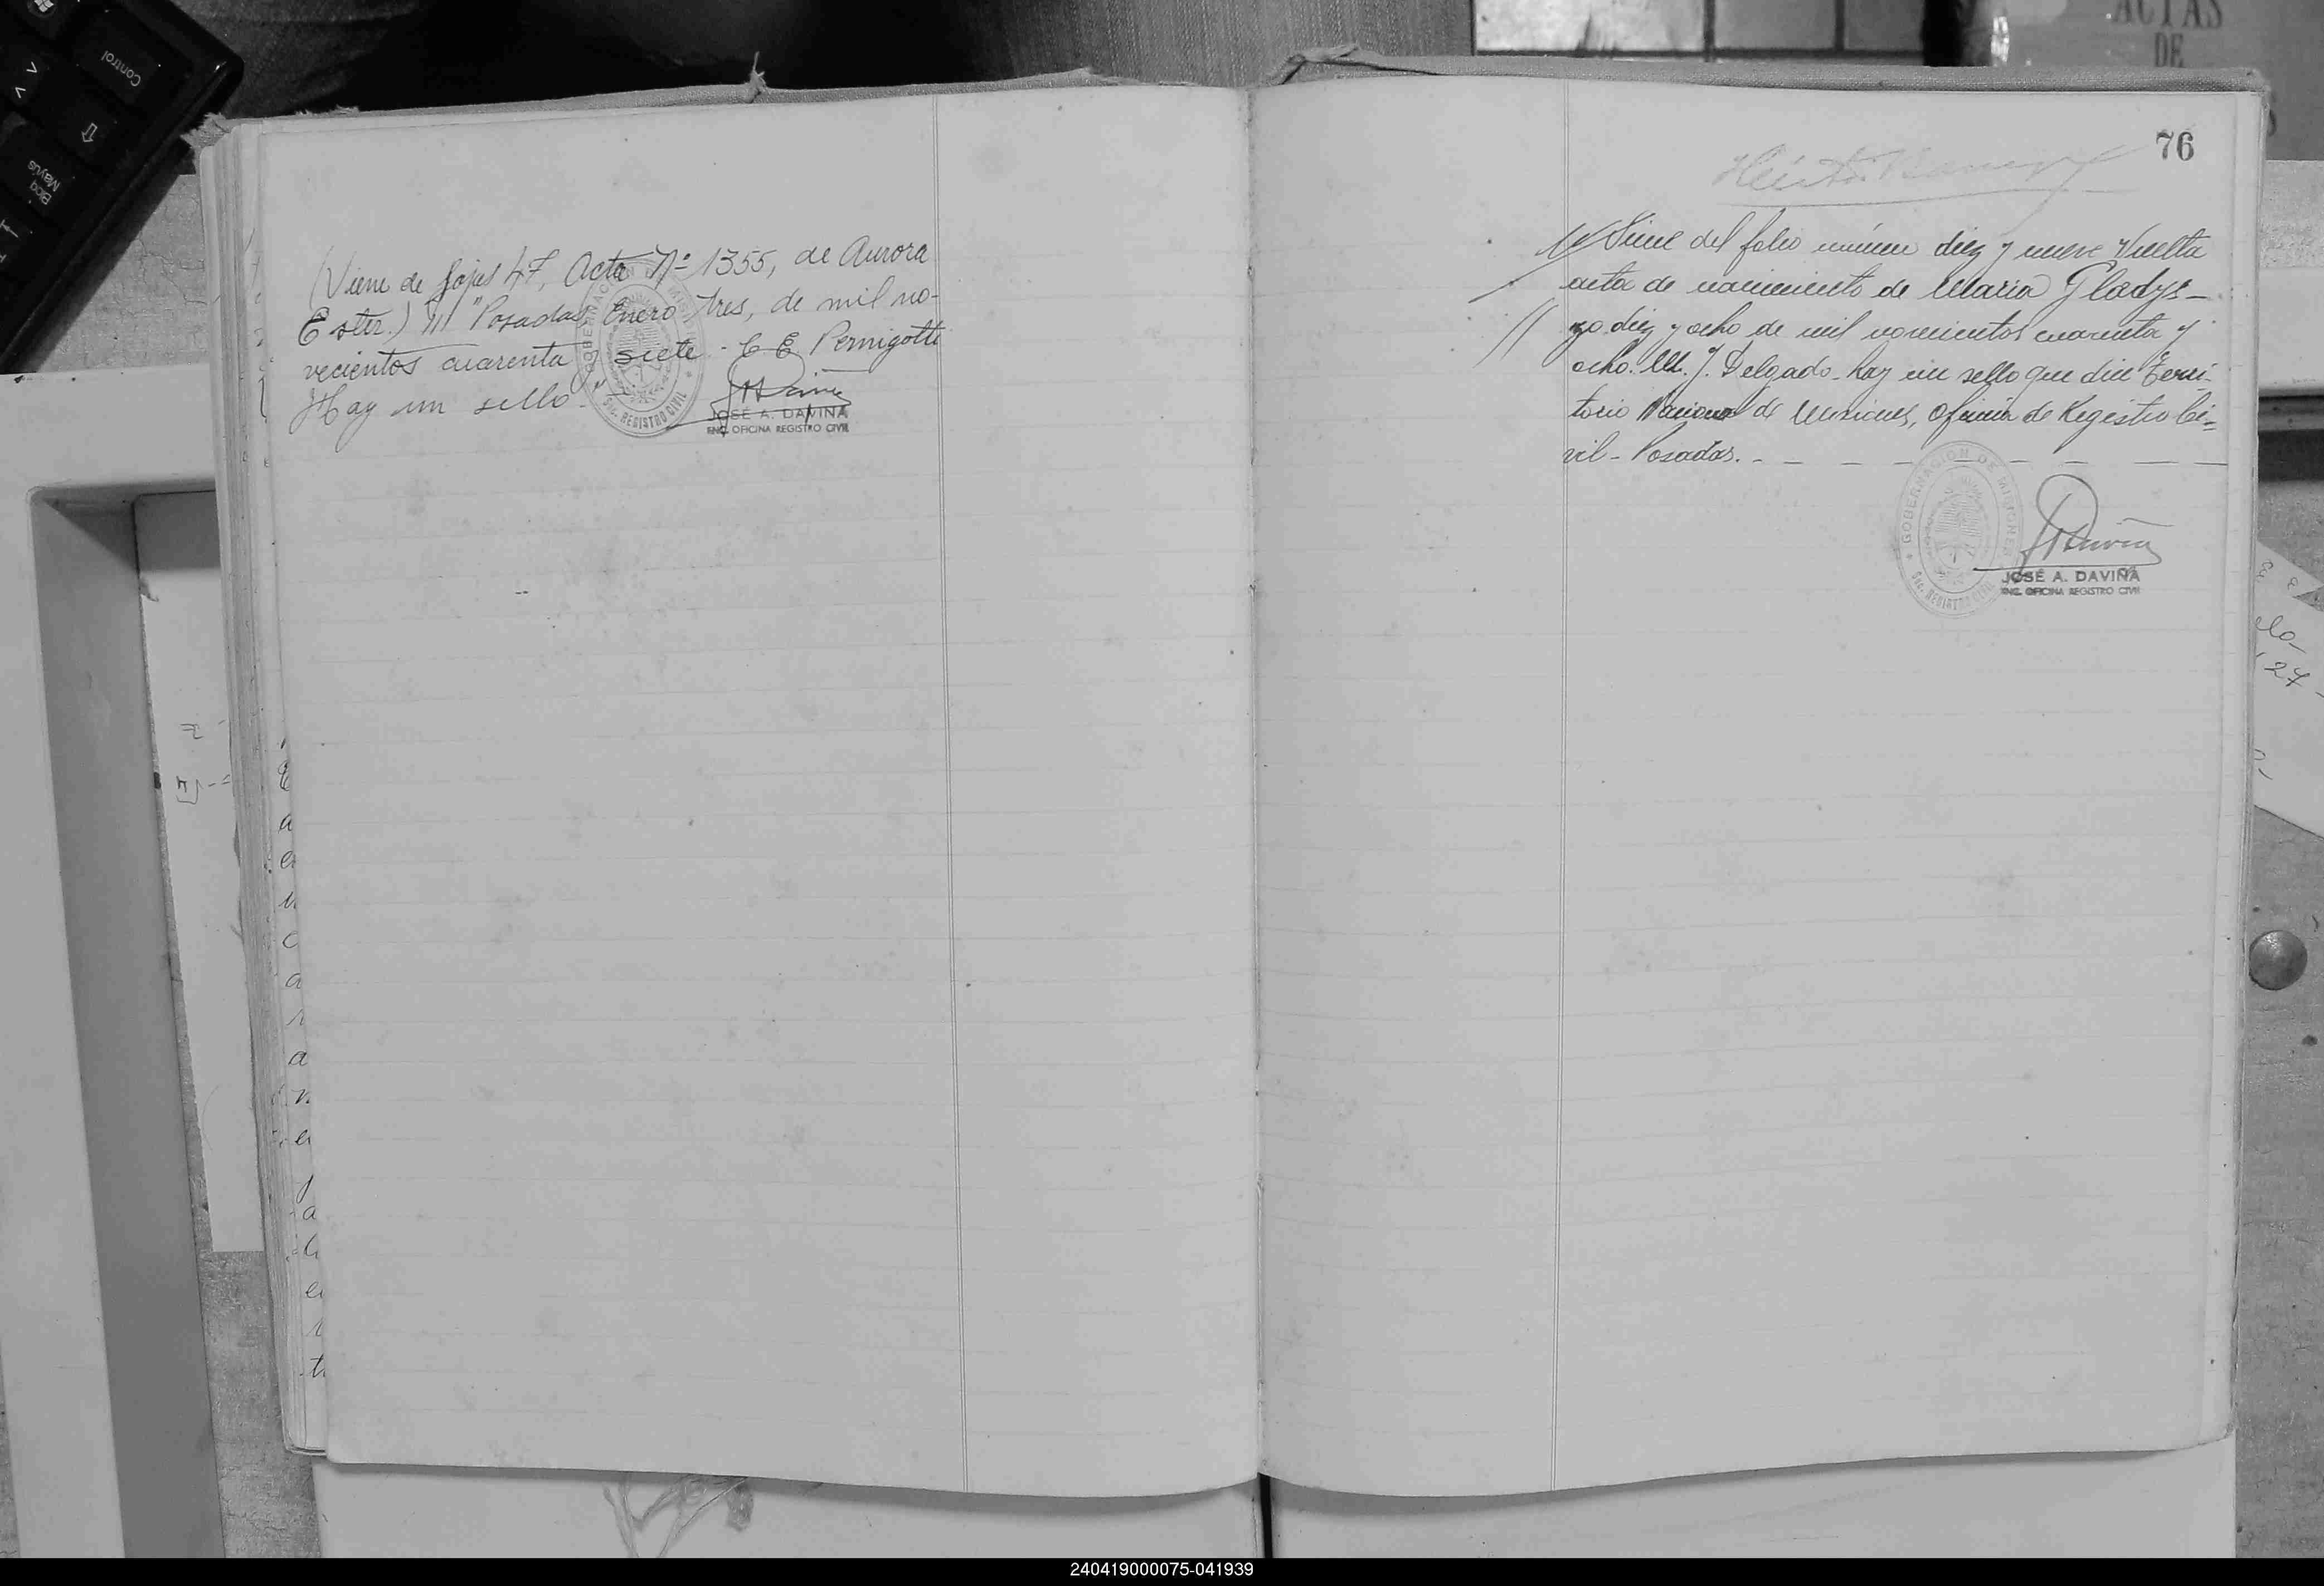 Control
Bloq
Mayús
ACTAS
DE
(Viene de fojas 47, Acta Nº 1355, de Aurora
Ester.) /// "Posadas, Enero tres, de mil no-
vecientos cuarenta y siete - C E Pernigotti
Hay un sello
GOBERNACION DE MISIONES
Sec. REGISTRO CIVIL
JOSÉ A. DAVIÑA
ENC. OFICINA REGISTRO CIVIL
76
Viene del folio número diez y nueve Vuelta
acta de nacimiento de María Gladys -
// zo diez y ocho de mil novecientos cuarenta y
ocho. M. J. Delgado - hay un sello que dice Terri-
torio Nacional de Misiones, Oficina de Registro Ci-
vil - Posadas. -
GOBERNACION DE MISIONES
Sec. REGISTRO CIVIL
JOSÉ A. DAVIÑA
ENC. OFICINA REGISTRO CIVIL
27
240419000075-041939